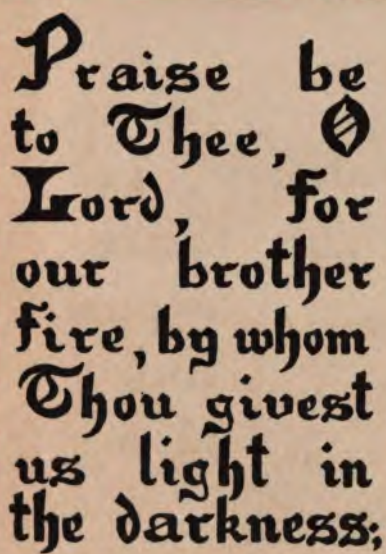 Praise be
to Thee, O
Lord, for
our brother
fire, by whom
Thou givest
us light in
the darkness;